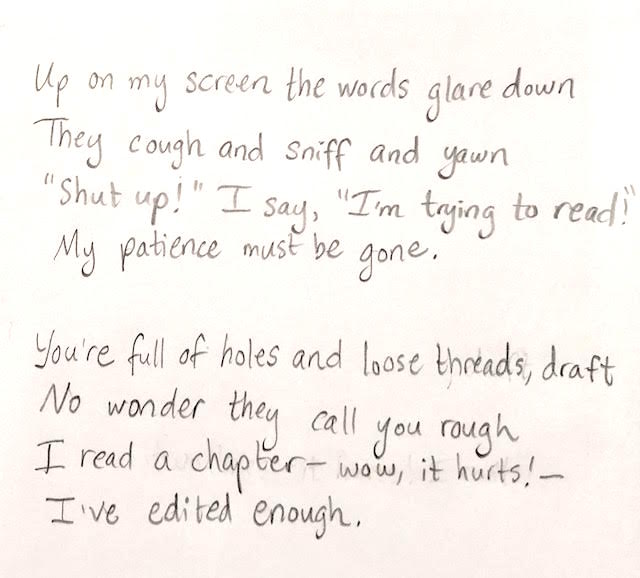 Up on my screen the words glare down
They cough and sniff and yawn
"Shut up!" I say, "I'm trying to read!"
My patience must be gone.
You're full of holes and loose threads, draft
No wonder they call you rough
I read a chapter – wow, it hurts! –
I've edited enough.